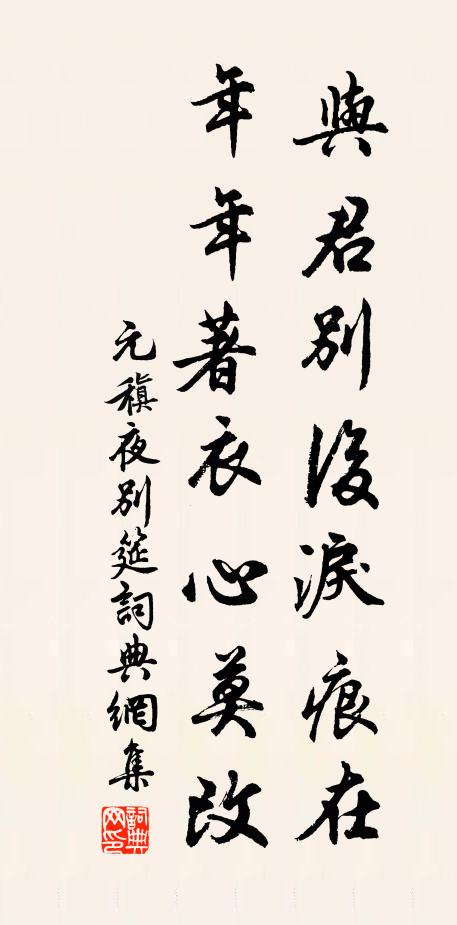 與君別後淚痕在
年年著衣心莫改
元稹夜別筵詞典網集
詞典網印